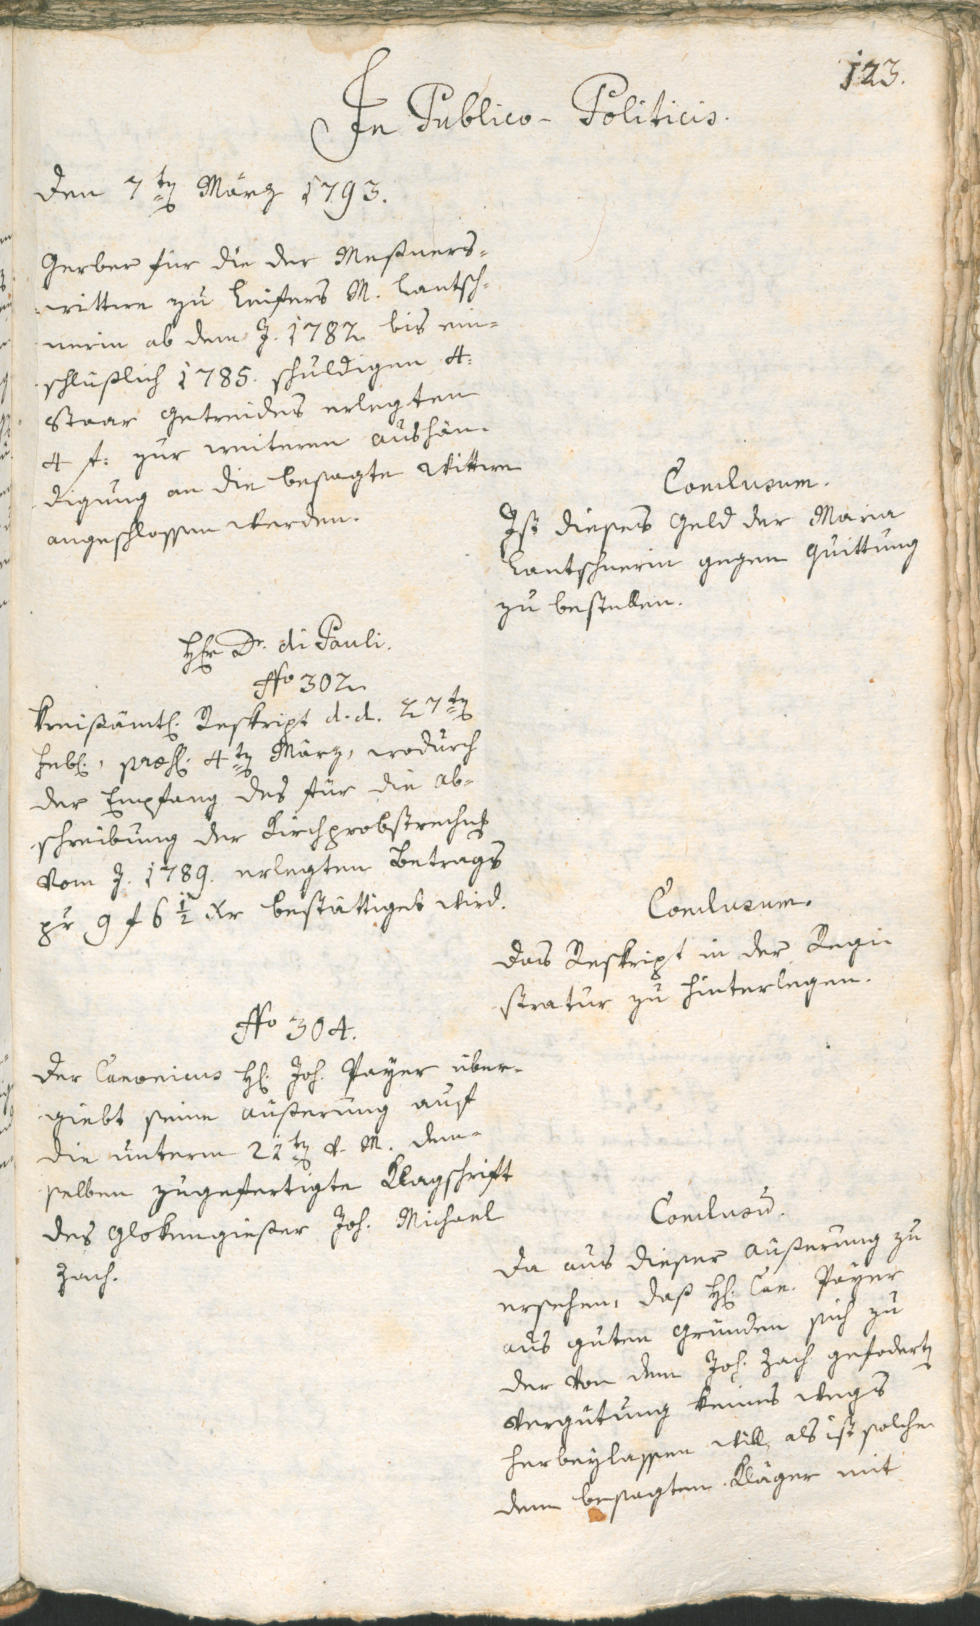 123.
In Publico-Politicis.
Den 7ten März 1793.
Gerber für die der Meßners-
wittwe zu Leifers M. Lantsch-
nerin ab dem J. 1782 bis ein-
schlüßlich 1785. schuldigen 4.
Staar Getreides erlegten
4 f: zur weiteren aushän-
digung an die besagte Wittwe
angeschlossen werden.
Conclusum.
Ist dieses Geld der Maria
Lantschnerin gegen Quittung
zu bestellen.
Hr Dr. di Pauli.
No 302
Kreißämtl. Reskript d. d. 27ten
Febr., præs. 4ten März, wodurch
der Empfang des für die ab-
schreibung der Kirchprobstrechng
vom J. 1789. erlegten Betrags
pr 9 f 6 1/2 xr bestättiget wird.
Conclusum.
Das Reskript in der Regi-
stratur zu hinterlegen.
No 304.
Der Canonicus H. Joh. Payer über-
giebt seine äußerung auf
die unterm 21ten v. M. dem-
selben zugefertigte Klagschrift
des Glokengießer Joh. Michael
Zach.
Conclusū.
Da aus dieser äußerung zu
ersehen, daß H. Can. Payer
aus guten gründen sich zu
der von dem Joh. Zach geforderten
vergütung keines wegs
herbeylassen will, als ist solche
dem besagten Kläger mit